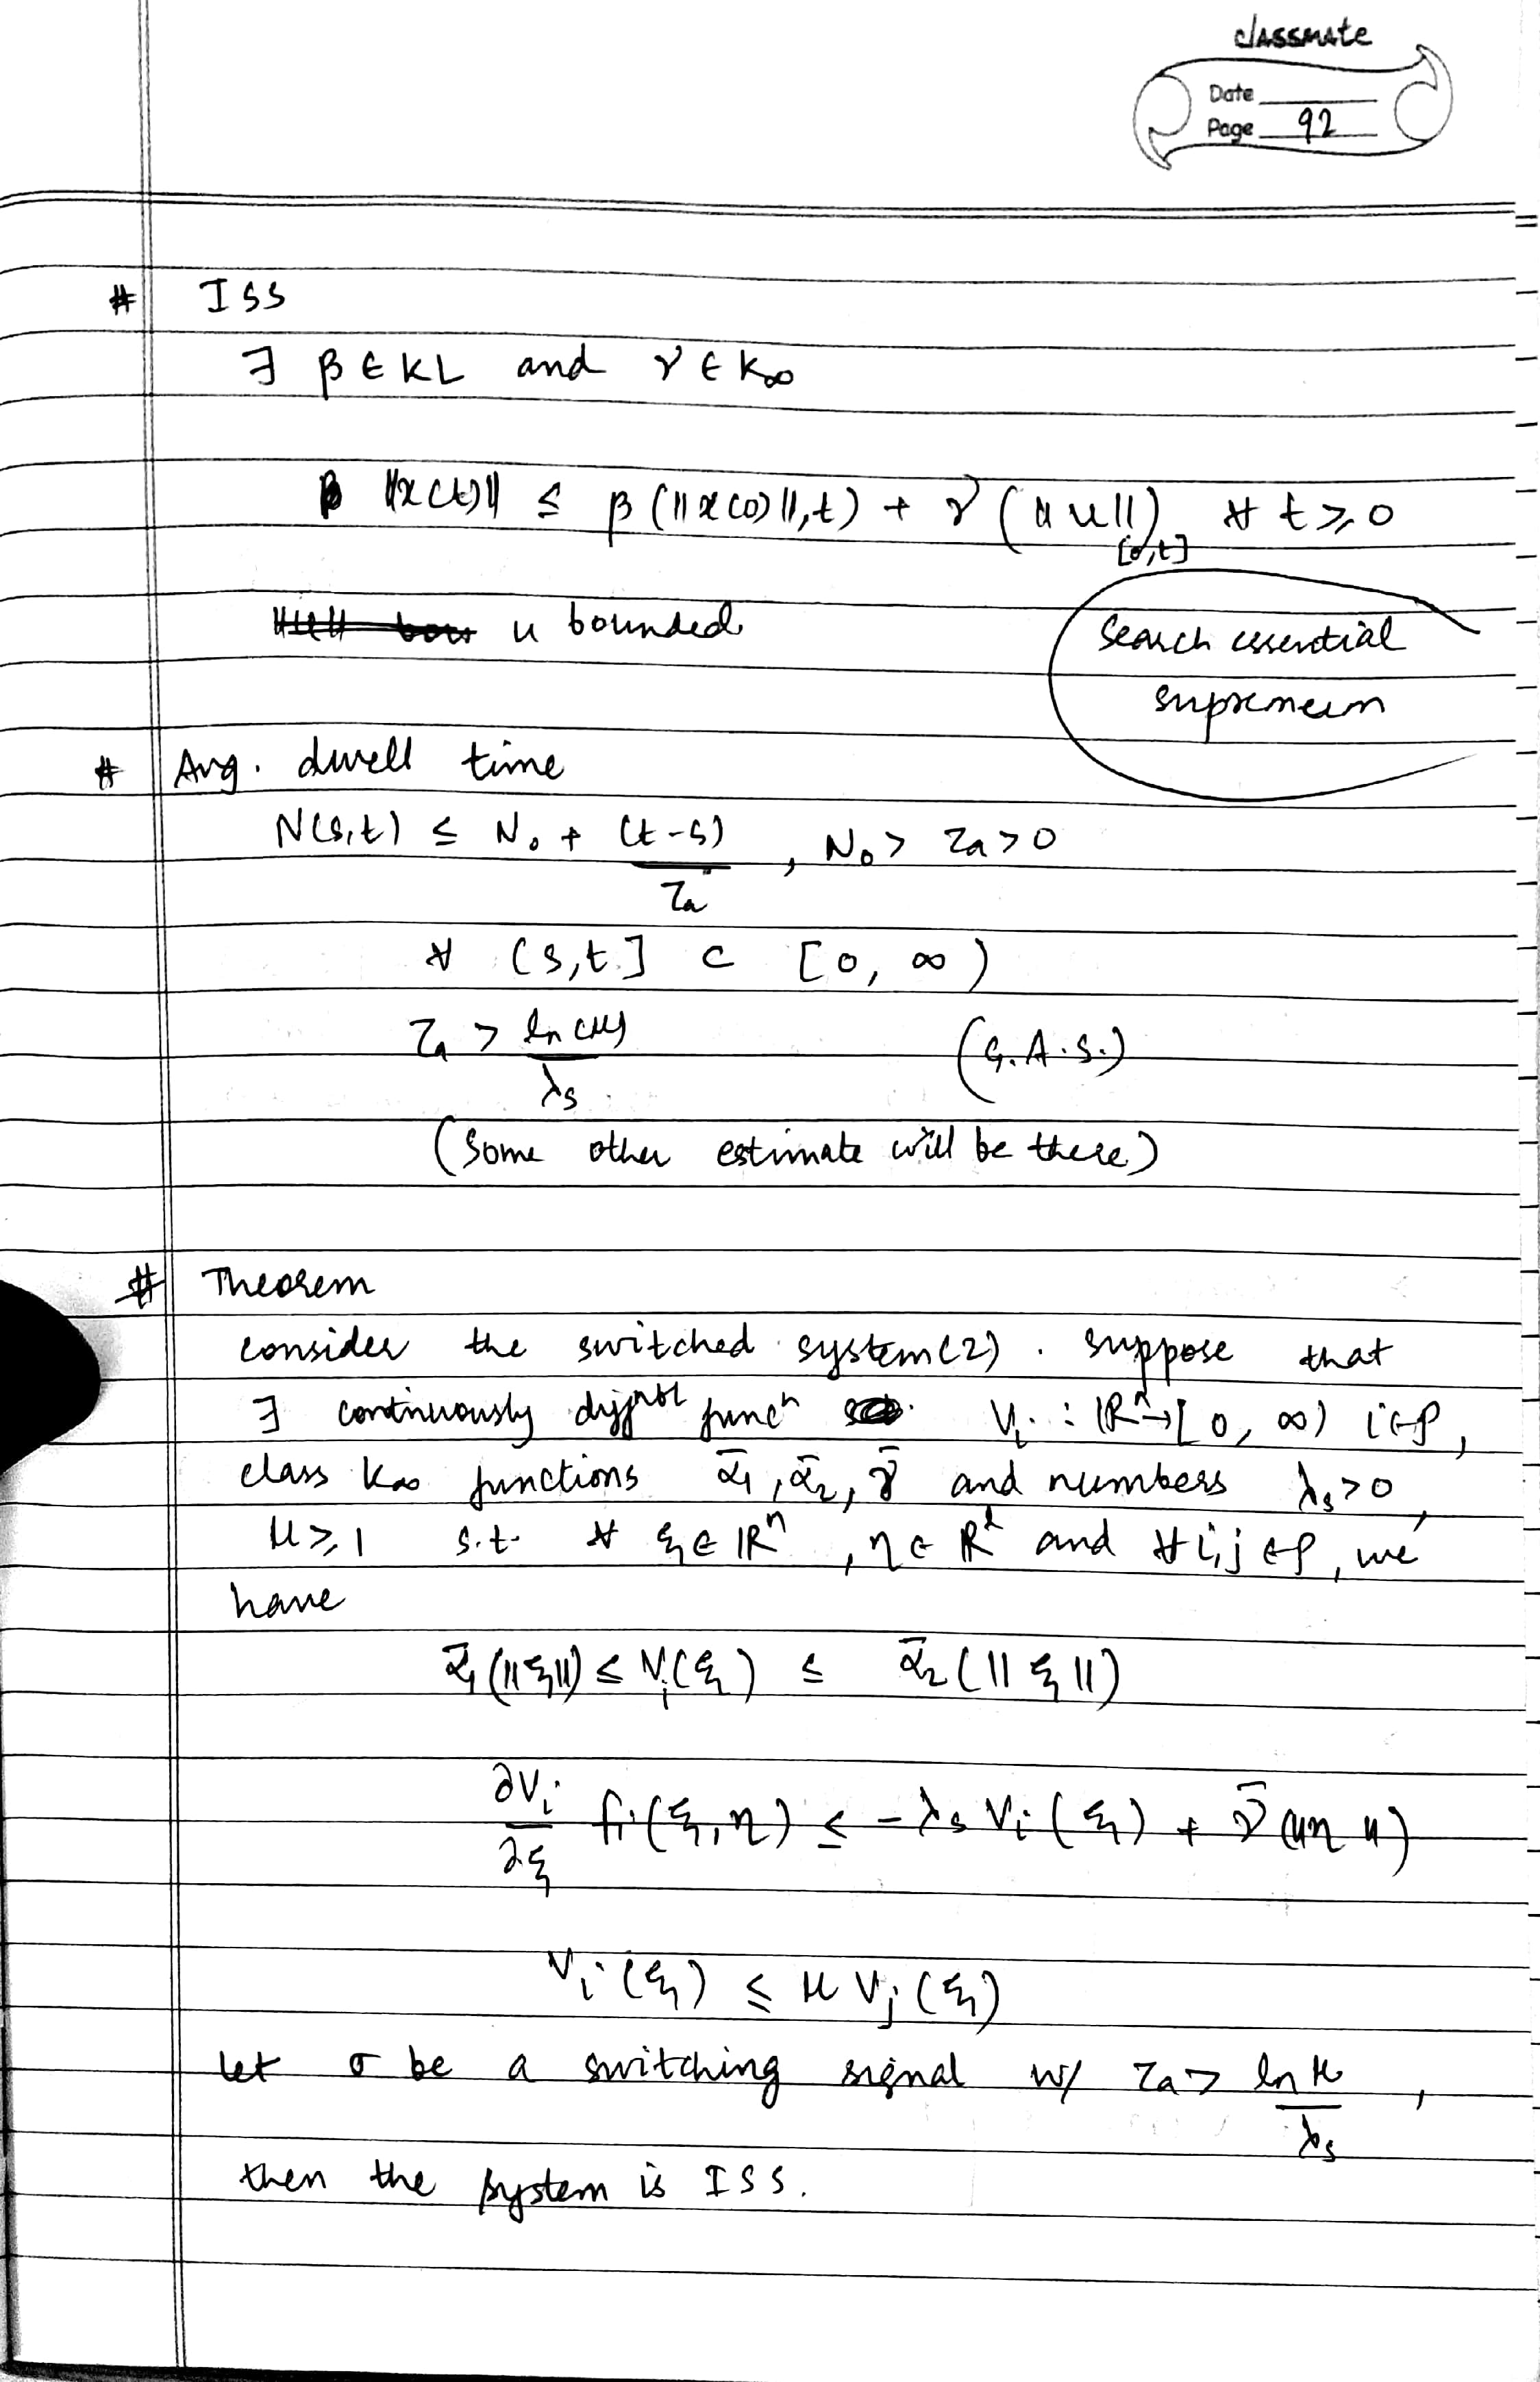 classmate
Date
Page 92
# ISS
∃ β ∈ KL and γ ∈ K∞
‖x(t)‖ ≤ β(‖x(0)‖,t) + γ(‖u‖)[0,t] ∀ t ≥ 0
u bounded
Search essential
supremeum
# Avg. dwell time
N(s,t) ≤ N₀ + (t-s)/τa , N₀ > τa > 0
∀ (s,t] ⊂ [0, ∞)
τa > ln(μ)/λs (G.A.S.)
(Some other estimate will be there)
# Theorem
consider the switched system (2). suppose that
∃ continuously diffnbl funcⁿ Vi : ℝⁿ→[0, ∞) i∈P,
class K∞ functions ᾱ₁, ᾱ₂, γ̄ and numbers λs>0,
μ ≥ 1 s.t. ∀ ξ ∈ ℝⁿ, η ∈ ℝᵈ and ∀ i,j ∈ P, we
have
ᾱ₁(‖ξ‖) ≤ Vi(ξ) ≤ ᾱ₂(‖ξ‖)
∂Vi/∂ξ fi(ξ,η) ≤ -λs Vi(ξ) + γ̄(‖η‖)
Vi(ξ) ≤ μ Vj(ξ)
let σ be a switching signal w/ τa > ln μ/λs ,
then the system is ISS.